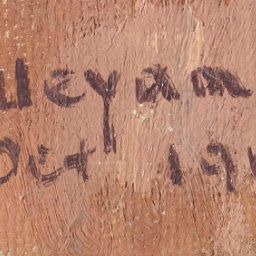 ueyam
Oct 19